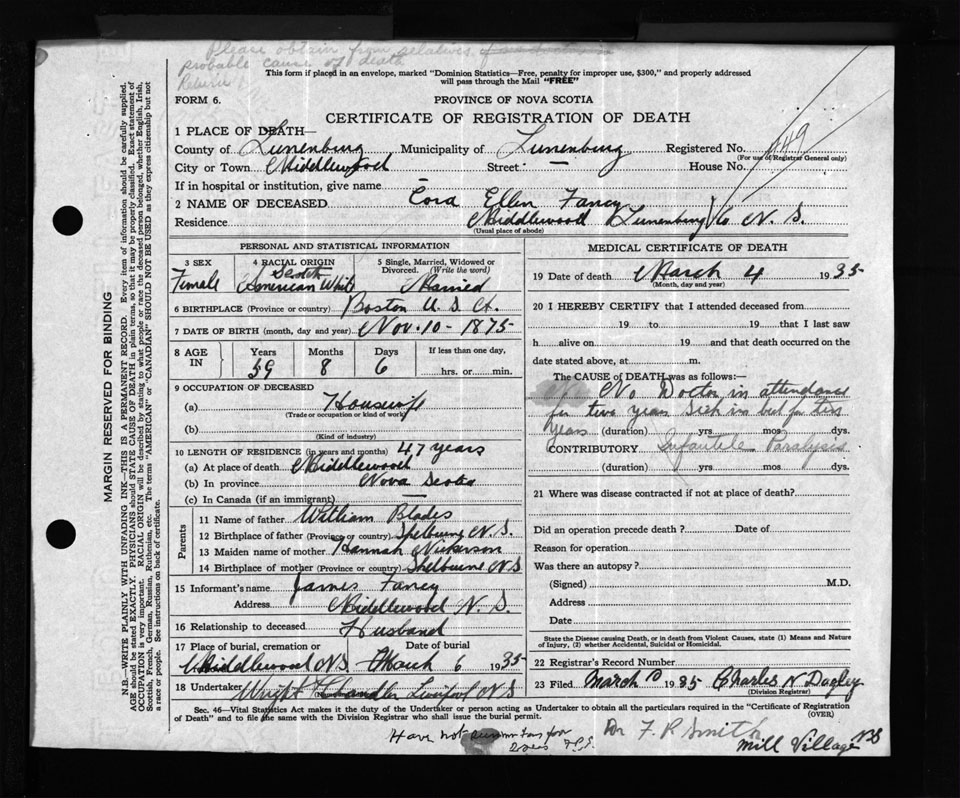 Please obtain from relatives
probable cause of death
This form if placed in an envelope, marked "Dominion Statistics—Free, penalty for improper use, $300," and properly addressed
will pass through the Mail "FREE"
FORM 6.
PROVINCE OF NOVA SCOTIA
CERTIFICATE OF REGISTRATION OF DEATH
1 PLACE OF DEATH—
County of Lunenburg Municipality of Lunenburg Registered No. 449
(For use of Registrar General only)
City or Town Middlewood Street — House No.
If in hospital or institution, give name —
2 NAME OF DECEASED Cora Ellen Fancy
Residence Middlewood Lunenburg Co N. S.
(Usual place of abode)
PERSONAL AND STATISTICAL INFORMATION
3 SEX Female
4 RACIAL ORIGIN Scotch American White
5 Single, Married, Widowed or Divorced. (Write the word) Married
6 BIRTHPLACE (Province or country) Boston U. S. A.
7 DATE OF BIRTH (month, day and year) Nov. 10 - 1875
8 AGE IN Years 59 Months 8 Days 6 If less than one day, hrs. or min.
9 OCCUPATION OF DECEASED
(a) Housewife
(Trade or occupation or kind of work)
(b)
(Kind of industry)
10 LENGTH OF RESIDENCE (in years and months) 47 years
(a) At place of death Middlewood
(b) In province Nova Scotia
(c) In Canada (if an immigrant) —
Parents
11 Name of father William Blades
12 Birthplace of father (Province or country) Shelburne N. S.
13 Maiden name of mother Hannah Nickerson
14 Birthplace of mother (Province or country) Shelburne N S
15 Informant's name James Fancy
Address Middlewood N. S.
16 Relationship to deceased Husband
17 Place of burial, cremation or Date of burial
Middlewood N S March 6 1935
18 Undertaker Wright Chandler Liverpool N S
MEDICAL CERTIFICATE OF DEATH
19 Date of death March 4 1935
(Month, day and year)
20 I HEREBY CERTIFY that I attended deceased from
19 to 19 that I last saw
h alive on 19 and that death occurred on the
date stated above, at m.
The CAUSE of DEATH was as follows:—
No Doctor in attendance
for two years Sick in bed for two
years (duration) yrs. mos. dys.
CONTRIBUTORY Infantile Paralysis
(duration) yrs. mos. dys.
21 Where was disease contracted if not at place of death?
Did an operation precede death? Date of
Reason for operation
Was there an autopsy?
(Signed) M.D.
Address
Date
State the Disease causing Death, or in death from Violent Causes, state (1) Means and Nature
of Injury, (2) whether Accidental, Suicidal or Homicidal.
22 Registrar's Record Number
23 Filed March 10 1935 Charles N Dagley
(Division Registrar)
Sec. 46—Vital Statistics Act makes it the duty of the Undertaker or person acting as Undertaker to obtain all the particulars required in the "Certificate of Registration
of Death" and to file the same with the Division Registrar who shall issue the burial permit.
(OVER)
Have not for
F.P.S.
Dr F. P. Smith
Mill Village NS
MARGIN RESERVED FOR BINDING
N.B.—WRITE PLAINLY WITH UNFADING INK—THIS IS A PERMANENT RECORD. Every item of information should be carefully supplied.
AGE should be stated EXACTLY. PHYSICIANS should STATE CAUSE OF DEATH in plain terms, so that it may be properly classified. Exact statement of
OCCUPATION is very important. RACIAL ORIGIN will be described by stating to what people or race the deceased person belonged, whether English, Irish,
Scottish, French, German, Russian, Ruthenian, etc. The terms "AMERICAN" or "CANADIAN" SHOULD NOT BE USED as they express citizenship but not
a race or people. See instructions on back of certificate.